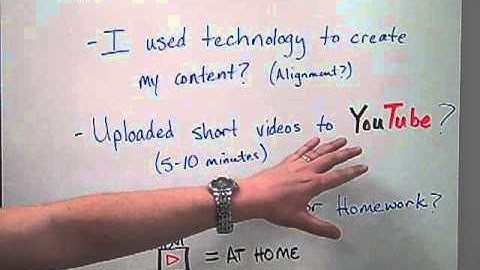 - I used technology to create
my content? (Alignment?)
- Uploaded short videos to YouTube?
(5-10 minutes)
or Homework?
= AT HOME